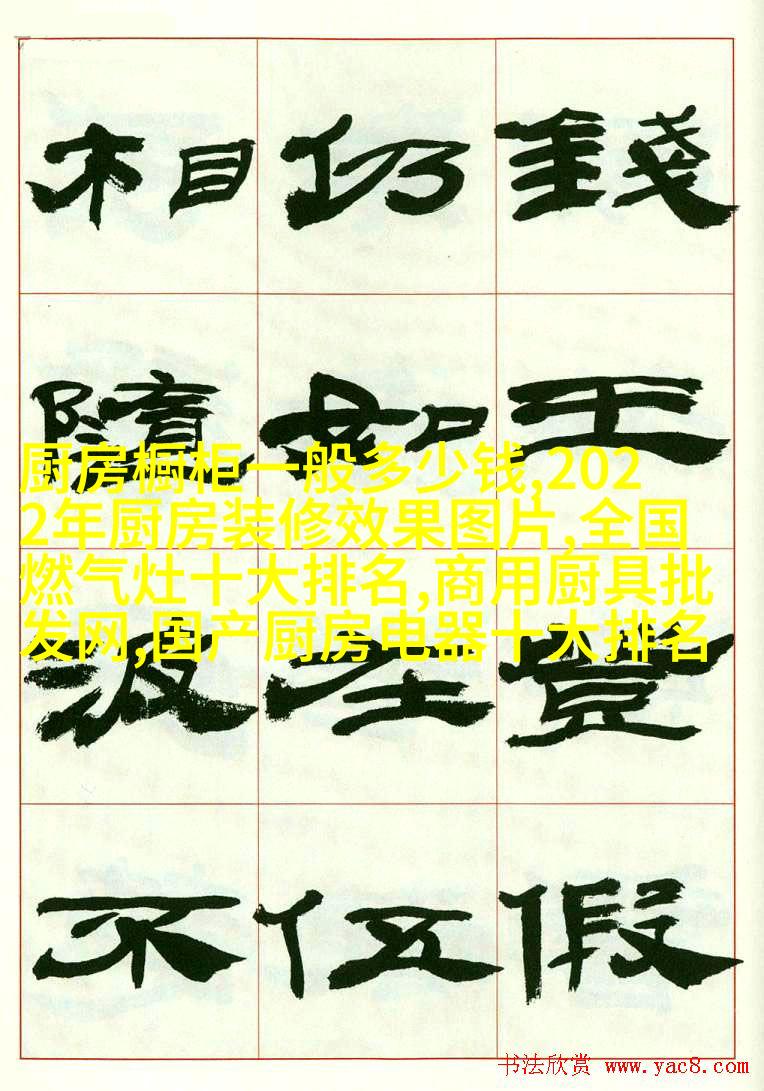 錢 王 登 假
仍 如 在 伍
相 隨 汲 不
厨房橱柜一般多少钱,202
2年厨房装修效果图片,全国
燃气灶十大排名,商用厨具批
发网,国产厨房电器十大排名
书法欣赏 www.yac8.com